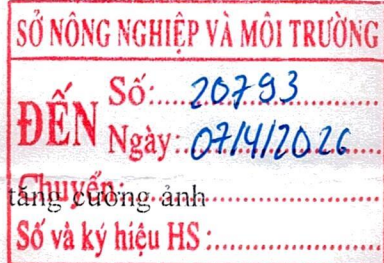 SỞ NÔNG NGHIỆP VÀ MÔI TRƯỜNG
ĐẾN
Số: 20793
Ngày: 07/4/2026
Chuyển:
tăng cường ảnh
Số và ký hiệu HS: